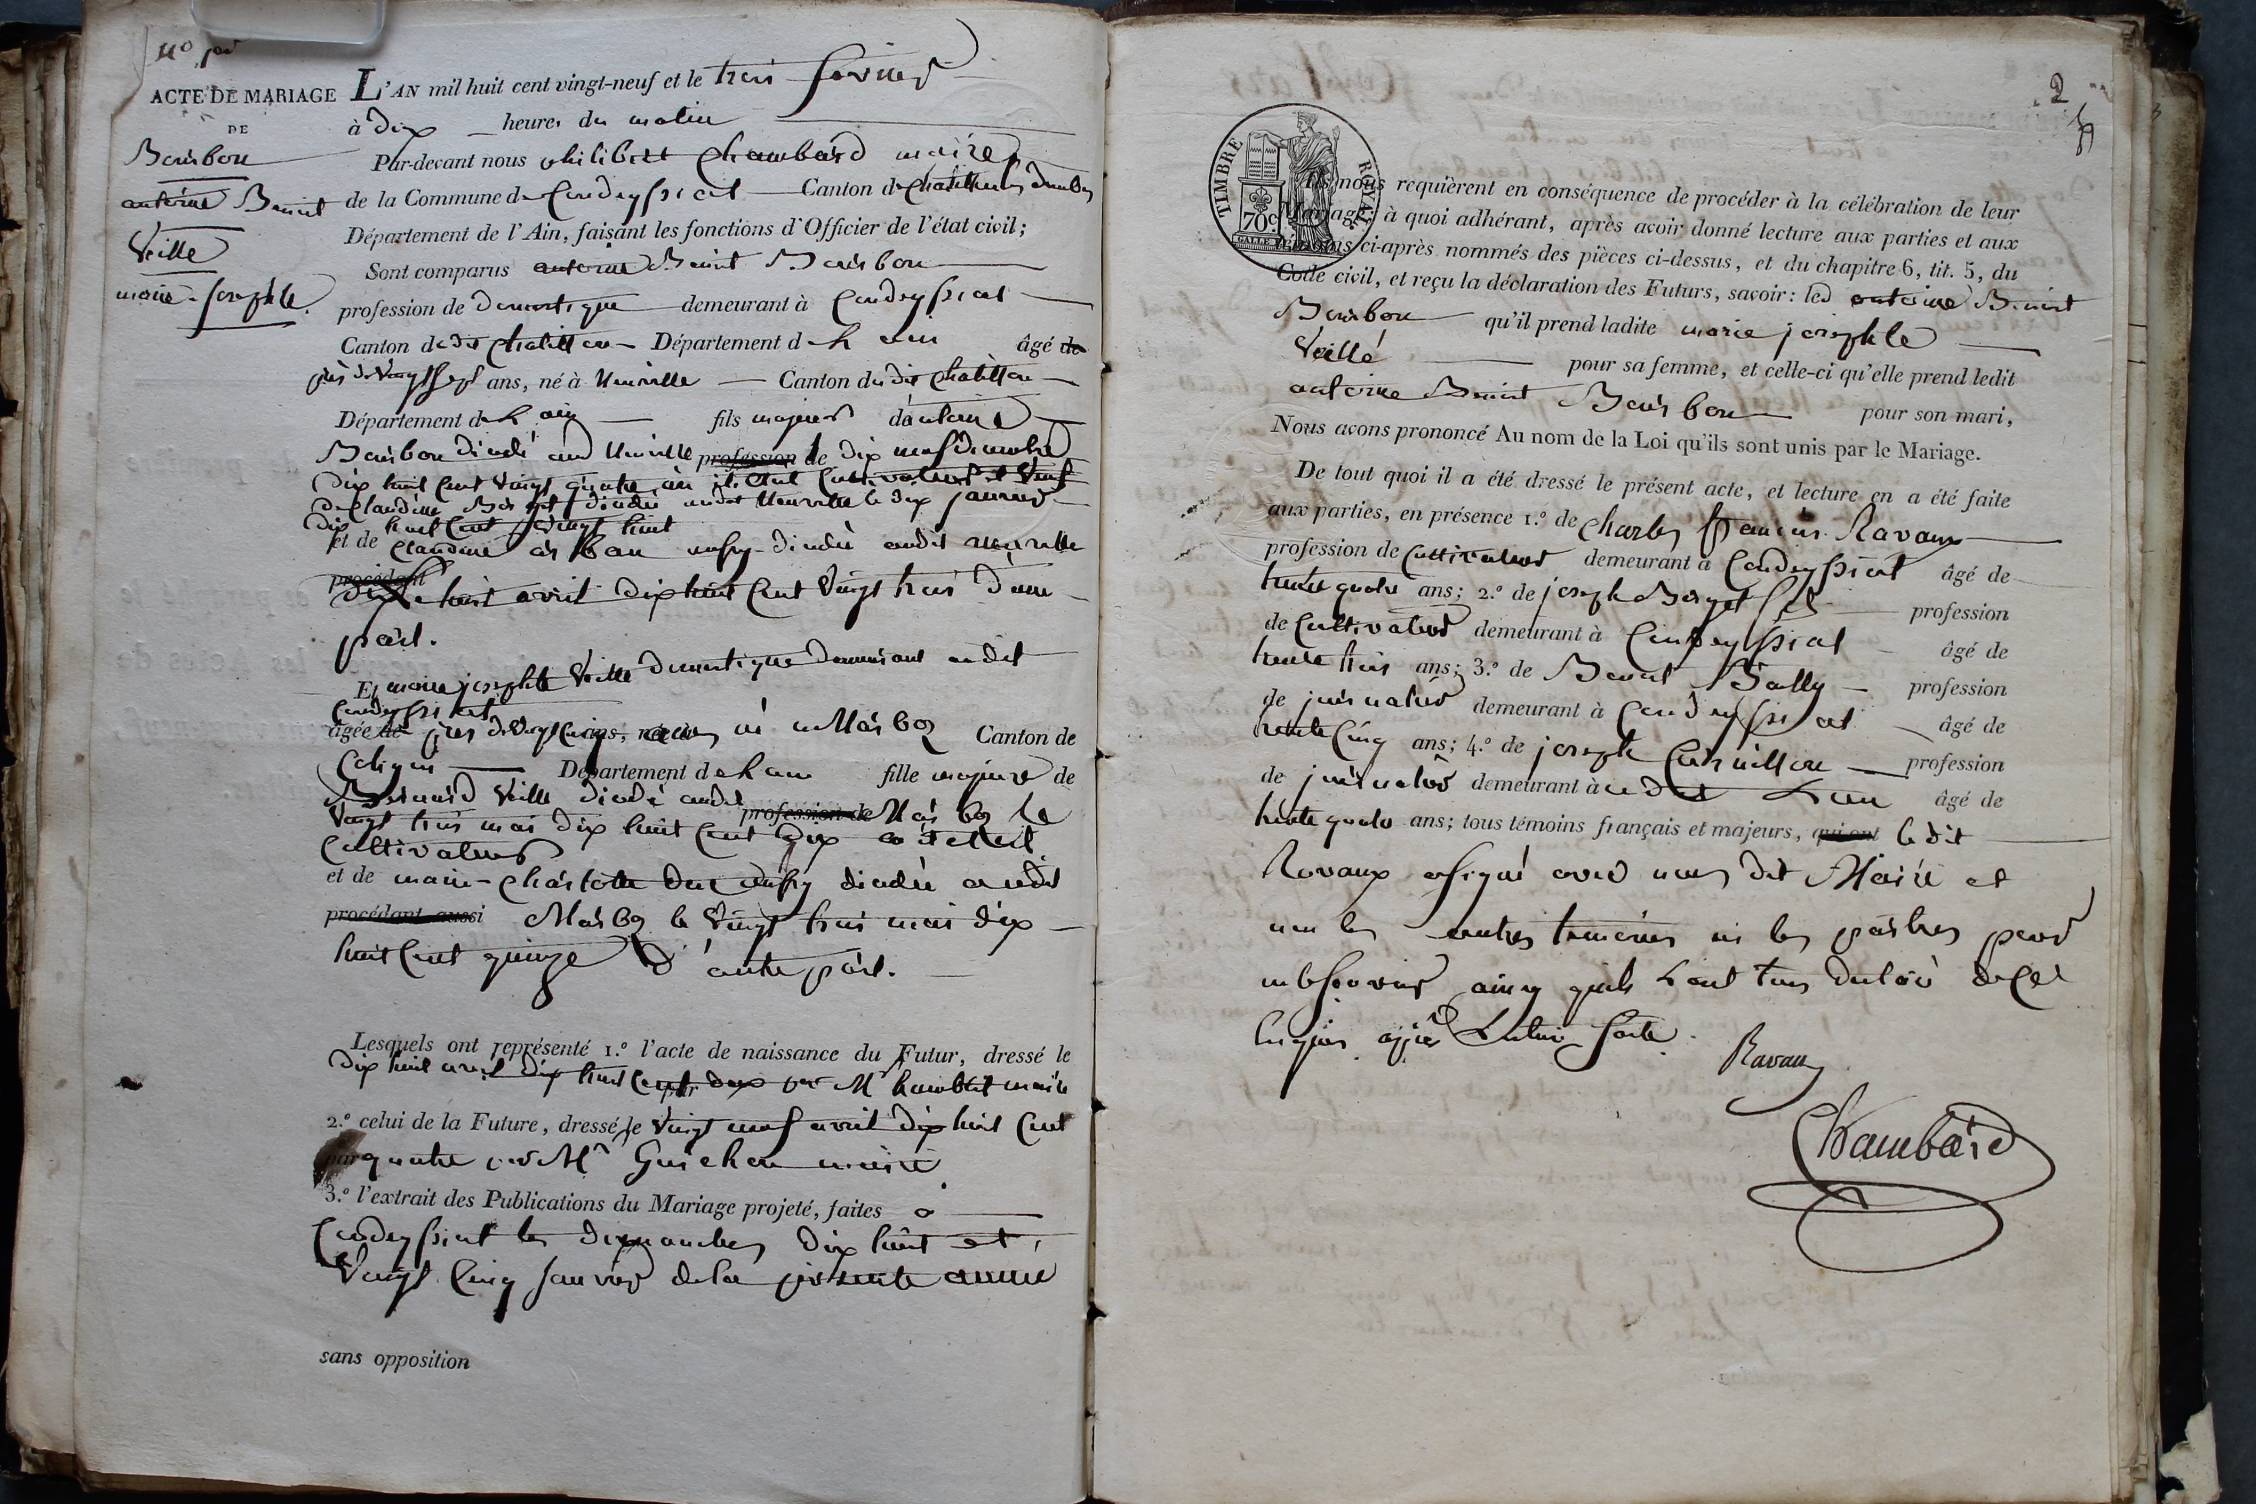 ACTE DE MARIAGE
DE
Bourbon
antoine Benoit
Veille
marie josephte.
L'AN mil huit cent vingt-neuf et le trois fevrier
à dix heures du matin
Par-devant nous philibert Chambard maire
de la Commune de Condeyssiat Canton de Chatillon les dombes
Département de l'Ain, faisant les fonctions d'Officier de l'état civil;
Sont comparus antoine Benoit Bourbon
profession de domestique demeurant à Condeyssiat
Canton de dit Chatillon Département de l'ain âgé de
près de vingt sept ans, né à Neuville Canton du dit Chatillon
Département de l'ain fils majeur d'antoine
Bourbon décédé aud Neuville profession de dix neuf
dix huit cent vingt quatre où il était cultivateur et veuf
de Claudine décédée audit Neuville le dix janvier
dix huit cent vingt huit
et de Claudine décédée audit neuville
procédant
le huit avril dix huit cent vingt trois d'une
part.
Et marie josephte Veille domestique demeurant audit
Condeyssiat
âgée de près de vingt cinq ans, née à Marboz Canton de
Coligny Département de l'ain fille majeure de
Bernard Veille décédé audit
profession de Marboz le
vingt trois mai dix huit cent dix où il était
cultivateur
et de marie Charlotte décédée audit
procédant aussi Marboz le vingt trois mai dix
huit cent quinze d'autre part.
Lesquels ont représenté 1.º l'acte de naissance du Futur, dressé le
dix huit avril dix huit cent deux par Mr humbert maire
par
2.º celui de la Future, dressé le vingt neuf avril dix huit cent
par quatre par Mr Guichon maire
3.º l'extrait des Publications du Mariage projeté, faites à
Condeyssiat les dimanches dix huit et
vingt cinq janvier de la présente année
sans opposition
2
TIMBRE ROYAL
70c
Ils nous requièrent en conséquence de procéder à la célébration de leur
Mariage; à quoi adhérant, après avoir donné lecture aux parties et aux
témoins ci-après nommés des pièces ci-dessus, et du chapitre 6, tit. 5, du
Code civil, et reçu la déclaration des Futurs, savoir: led antoine Benoit
Bourbon qu'il prend ladite marie josephte
Veille pour sa femme, et celle-ci qu'elle prend ledit
antoine Benoit Bourbon pour son mari,
Nous avons prononcé Au nom de la Loi qu'ils sont unis par le Mariage.
De tout quoi il a été dressé le présent acte, et lecture en a été faite
aux parties, en présence 1.º de Charles françois Ravaux
profession de cultivateur demeurant à Condeyssiat âgé de
trente quatre ans; 2.º de joseph Borget profession
de Cultivateur demeurant à Condeyssiat âgé de
trente trois ans; 3.º de Benoit Bally profession
de journalier demeurant à Condeyssiat âgé de
trente cinq ans; 4.º de joseph profession
de journalier demeurant à audit Lieu âgé de
trente quatre ans; tous témoins français et majeurs, qui ont ledit
Ravaux a signé avec nous dit Maire et
non les autres témoins ni les parties pour
ne le savoir ainsy quils l'ont tous déclaré de ce
requis après Lecture faite.
Ravaux
Chambard